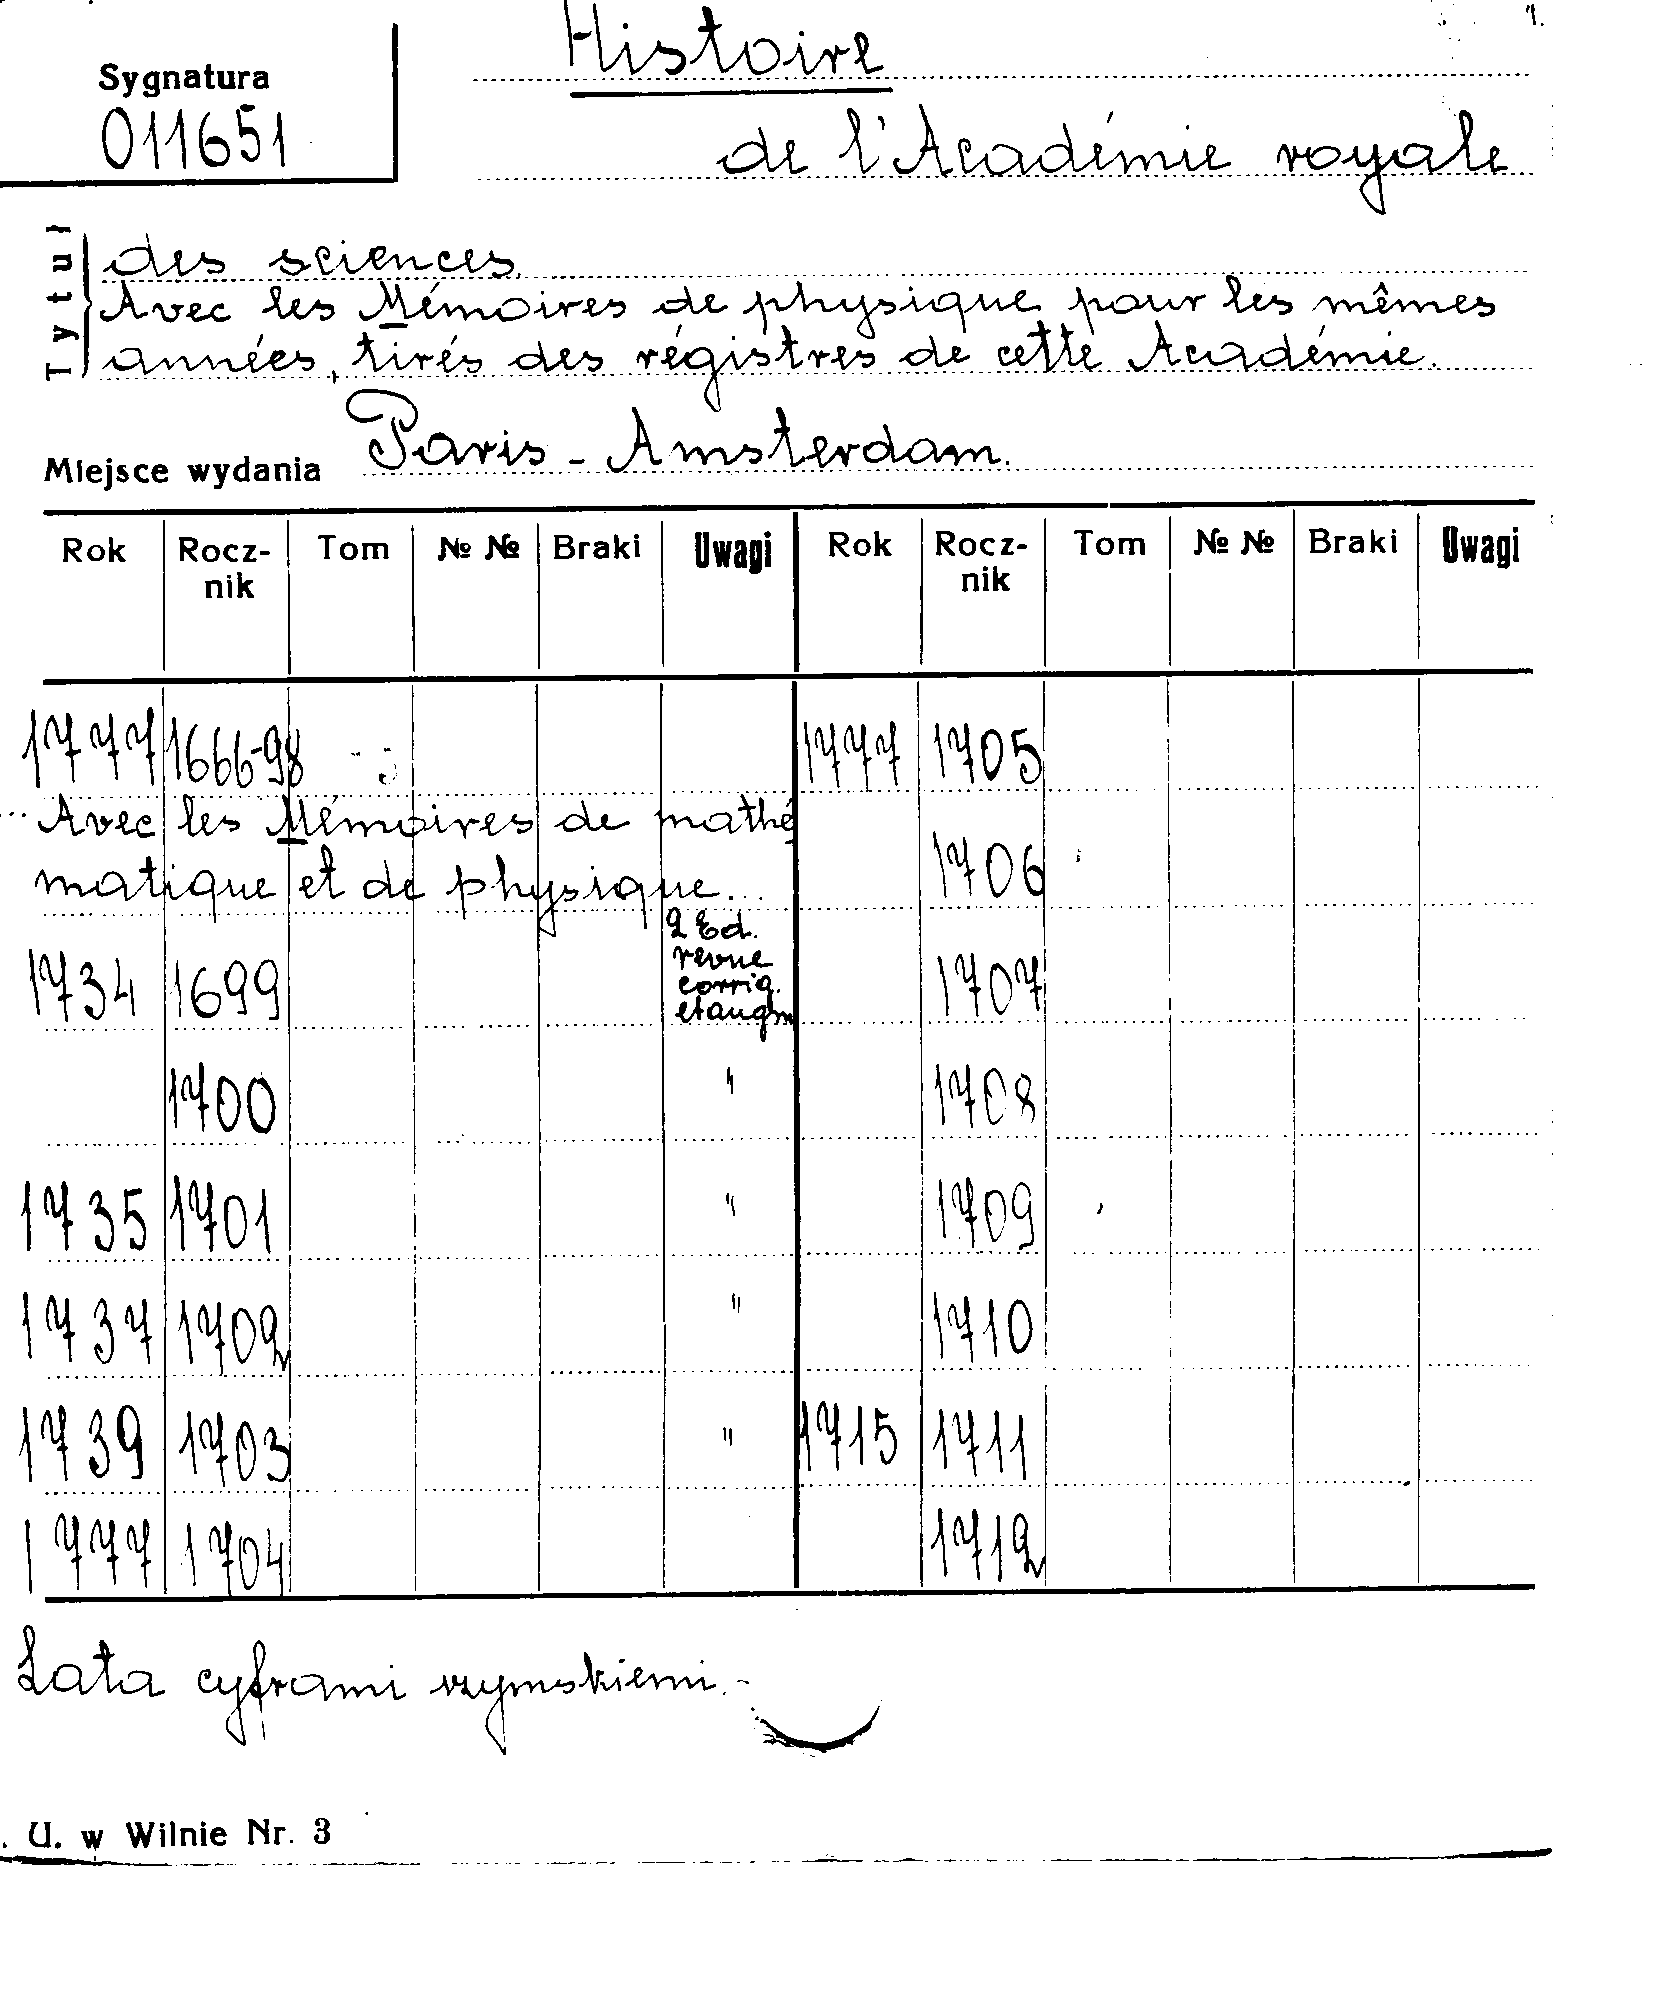 1.
Histoire
Sygnatura
011651
de l'Académie royale
Tytuł
des sciences.
Avec les Mémoires de physique pour les mêmes
années, tirés des régistres de cette Académie.
Miejsce wydania Paris - Amsterdam.
Rok Rocz- Tom № № Braki Uwagi Rok Rocz- Tom № № Braki Uwagi
nik nik
1777 1666-98 1777 1705
Avec les Mémoires de mathé
matique et de physique... 1706
2 Ed.
revue
1734 1699 corrig. 1707
et augm
1700 " 1708
1735 1701 " 1709
1737 1702 " 1710
1739 1703 " 1715 1711
1777 1704 1712
Lata cyframi rzymskiemi.-
. U. w Wilnie Nr. 3